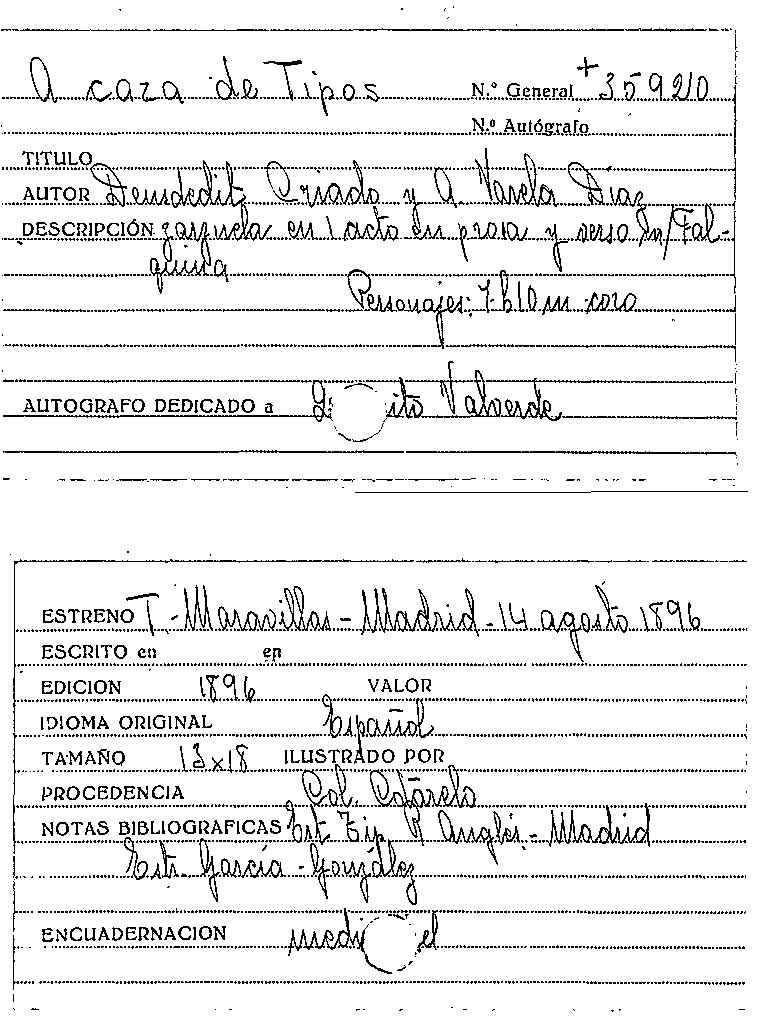 A caza de Tipos
N.º General +35920
N.º Autógrafo
TITULO
AUTOR Deusdedit Criado y A. Varela Díaz
DESCRIPCIÓN zarzuela en 1 acto en prosa y verso
Personajes: 7 h 10 m coro
AUTOGRAFO DEDICADO a Valverde
ESTRENO T. Maravillas - Madrid - 14 agosto 1896
ESCRITO en en
EDICION 1896 VALOR
IDIOMA ORIGINAL Español
TAMAÑO 13x18 ILUSTRADO POR
PROCEDENCIA Col. Cotarelo
NOTAS BIBLIOGRAFICAS Est. Tip. R Anglés - Madrid
Estr. García - González
ENCUADERNACION